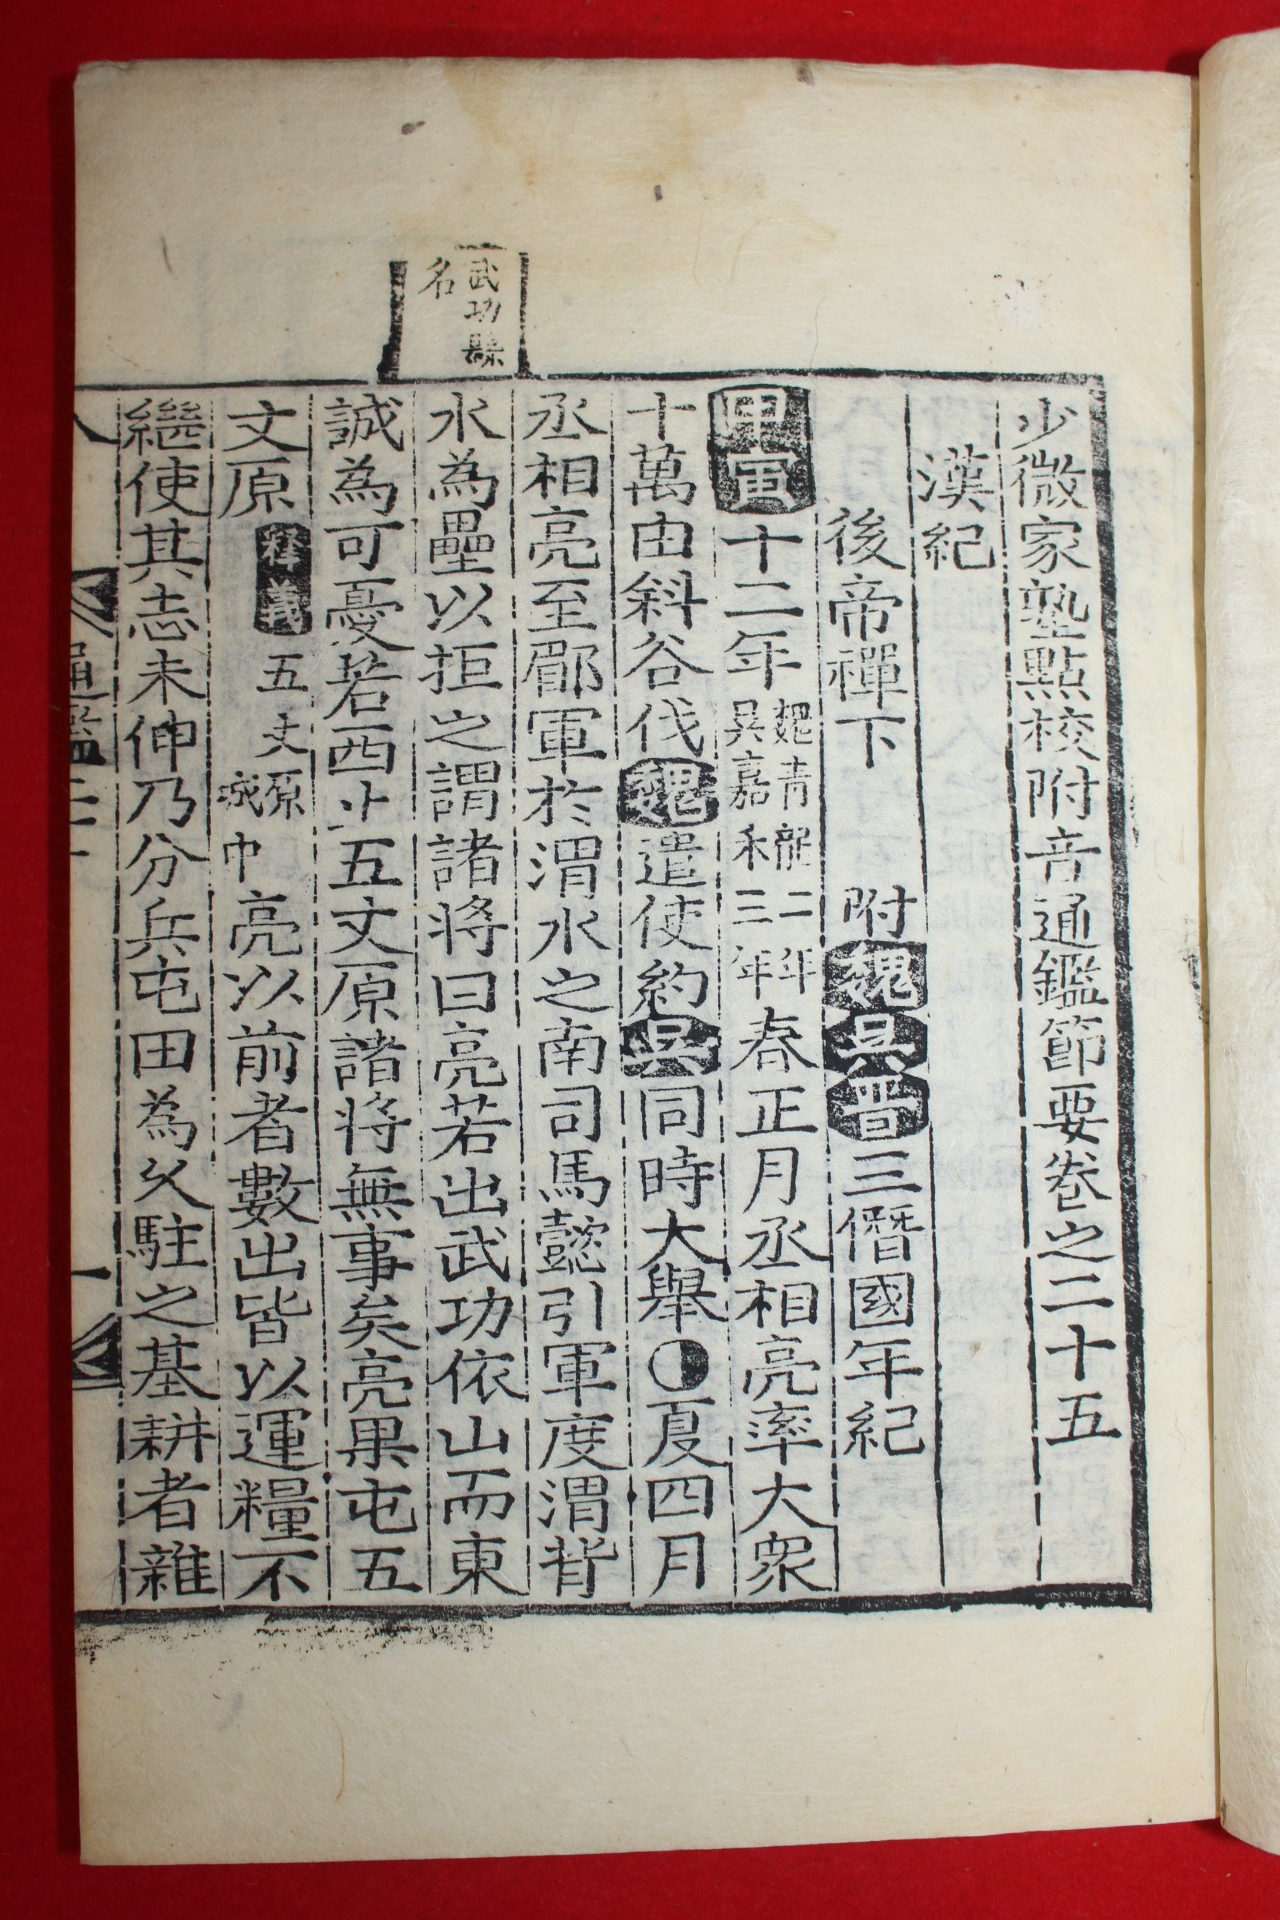 少微家塾點校附音通鑑節要卷之二十五
漢紀
後帝禪下　附魏吳晉三僭國年紀
甲寅十二年魏青龍二年吳嘉禾三年春正月丞相亮率大衆
十萬由斜谷伐魏遣使約吳同時大舉◑夏四月
丞相亮至郿軍於渭水之南司馬懿引軍度渭背
武功縣
名
水為壘以拒之謂諸將曰亮若出武功依山而東
誠為可憂若西上五文原諸將無事矣亮果屯五
文原釋義五丈原城巾亮以前者數出皆以運糧不
繼使其志未伸乃分兵屯田為久駐之基耕者雜
通鑑二十
一